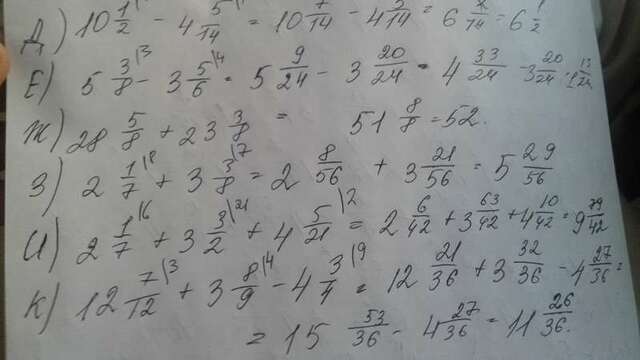 Е) 5 3/8 - 3 5/6 = 5 9/24 - 3 20/24 = 4 33/24 - 3 20/24 = 1 13/24
Ж) 28 5/8 + 23 3/8 = 51 8/8 = 52.
З) 2 1/7 + 3 3/8 = 2 8/56 + 3 21/56 = 5 29/56
И) 2 1/7 + 3 3/2 + 4 5/21 = 2 6/42 + 3 63/42 + 4 10/42 = 9 79/42
К) 12 7/12 + 3 8/9 - 4 3/4 = 12 21/36 + 3 32/36 - 4 27/36 =
= 15 53/36 - 4 27/36 = 11 26/36.